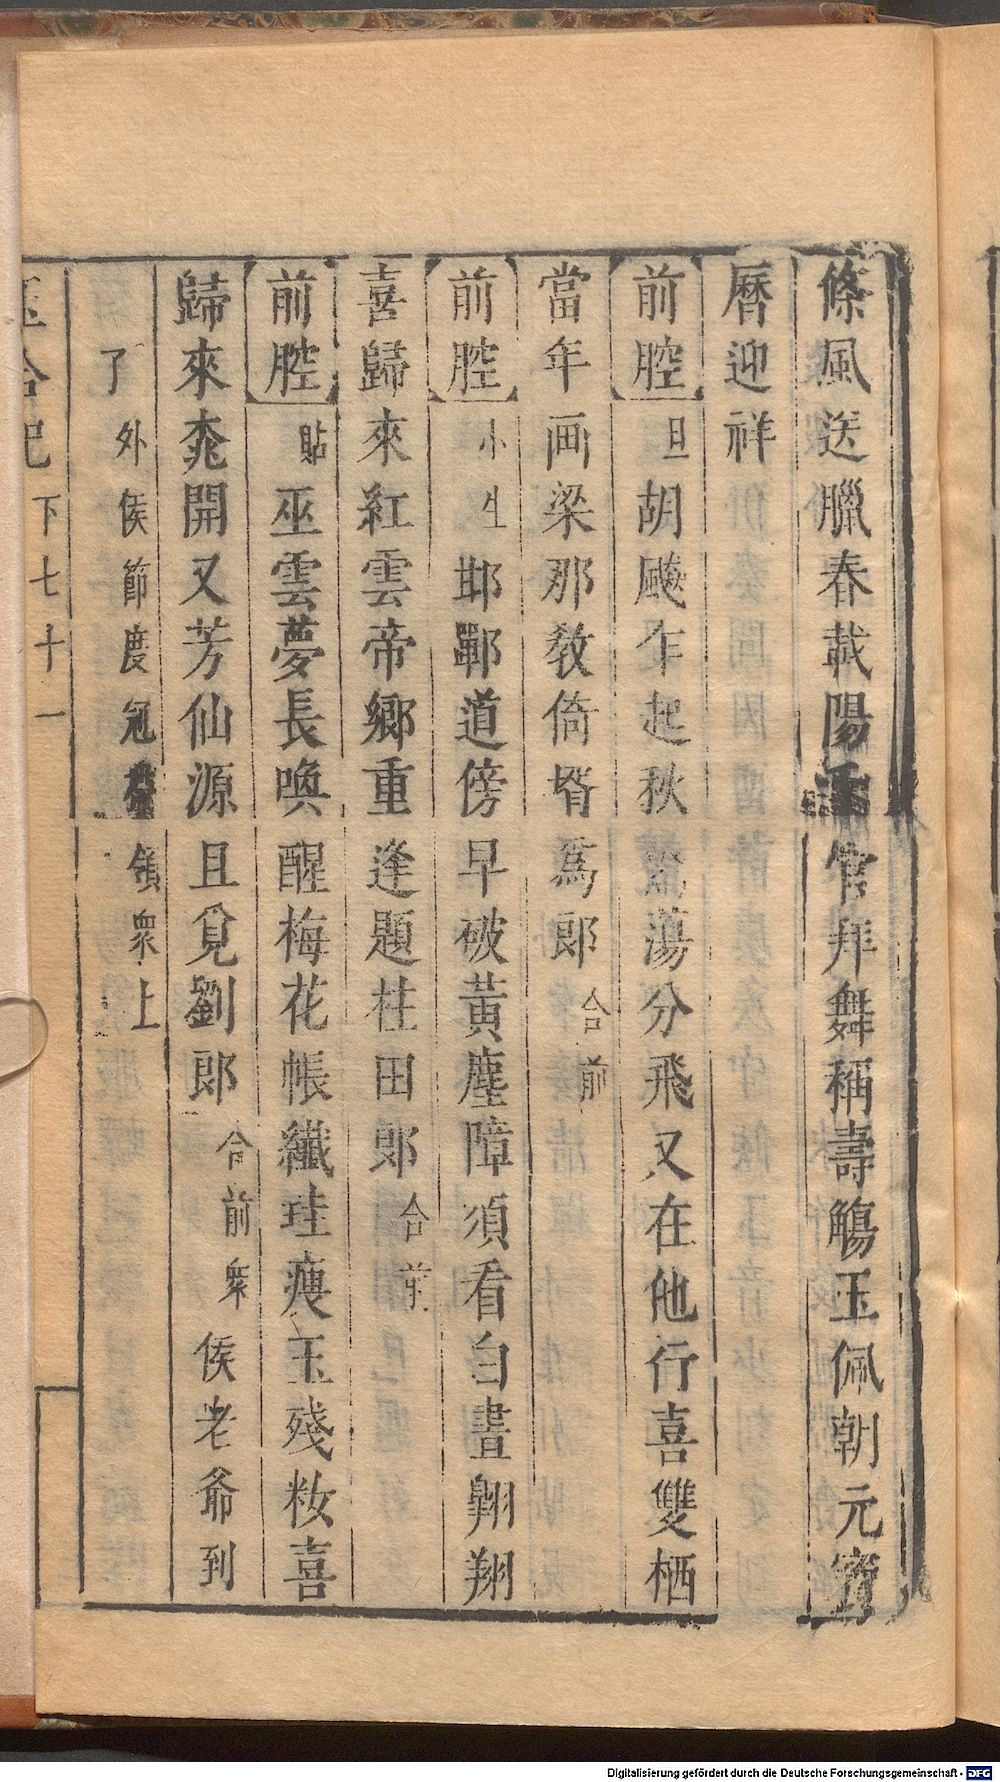 條風送臘春載陽 官拜舞稱壽觴玉佩朝元寶
曆迎祥
前腔 旦 胡颷乍起秋 蕩分飛又在他行喜雙栖
當年画梁那教倚壻爲郎 合前
前腔 小生 邯鄲道傍早破黃塵障須看白晝翱翔
喜歸來紅雲帝鄉重逢題柱田郎 合前
前腔 貼 巫雲夢長喚醒梅花帳纖珪瘦玉殘妝喜
歸來桃開又芳仙源且覓劉郎 合前衆 侯老爺到
了 外侯節度冠 領衆上
玉合記 下七十一
Digitalisierung gefördert durch die Deutsche Forschungsgemeinschaft - DFG